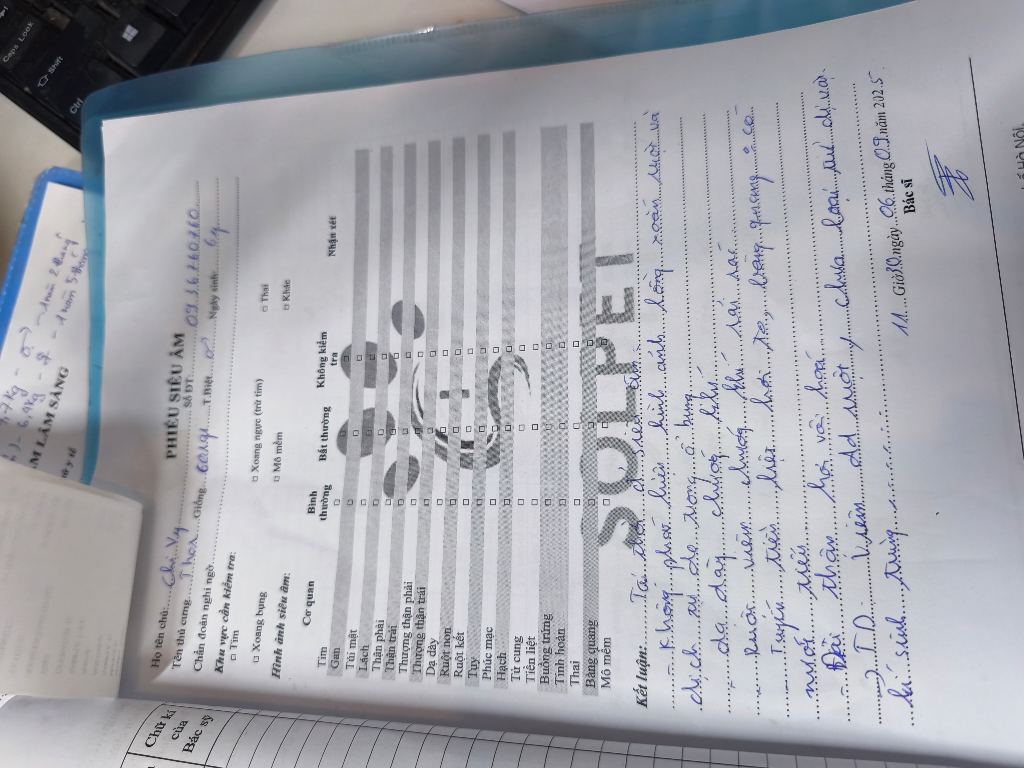 PHIẾU SIÊU ÂM
Họ tên chủ: Chị Vy Số ĐT: 0916260160
Tên thú cưng: Thor Giống: corgi T.Biệt: ♂ Ngày sinh: 6y
Chẩn đoán nghi ngờ
Khu vực cần kiểm tra:
□ Tim □ Xoang ngực (trừ tim) □ Thai
□ Xoang bụng □ Mô mềm □ Khác
Hình ảnh siêu âm:
Cơ quan Bình thường Bất thường Không kiểm tra Nhận xét
Tim □ □ □
Gan □ □ □
Túi mật □ □ □
Lách □ □ □
Thận phải □ □ □
Thận trái □ □ □
Thượng thận phải □ □ □
Thượng thận trái □ □ □
Dạ dày □ □ □
Ruột non □ □ □
Ruột kết □ □ □
Tụy □ □ □
Phúc mạc □ □ □
Hạch □ □ □
Tử cung □ □ □
Tiền liệt □ □ □
Buồng trứng □ □ □
Tinh hoàn □ □ □
Thai □ □ □
Bàng quang □ □ □
Mô mềm □ □ □
SOLPET
Kết luận: Tại thời đ' siêu âm:
- Không phát hiện hình ảnh lồng xoắn ruột và
dịch tự do trong ổ bụng
- dạ dày chướng khí
- Ruột viêm lượng khí rải rác
- Tuyến tiền liệt hơi to, bàng quang có
muối tiểu
- Đài thận hơi vôi hoá
=> T.D: Viêm dd ruột, chưa loại trừ dị vật,
kí sinh trùng
11 Giờ 30, ngày 06 tháng 09 năm 2025
Bác sĩ
Chữ kí
của
Bác sỹ
LÂM SÀNG
Caps Lock
Shift
Ctrl